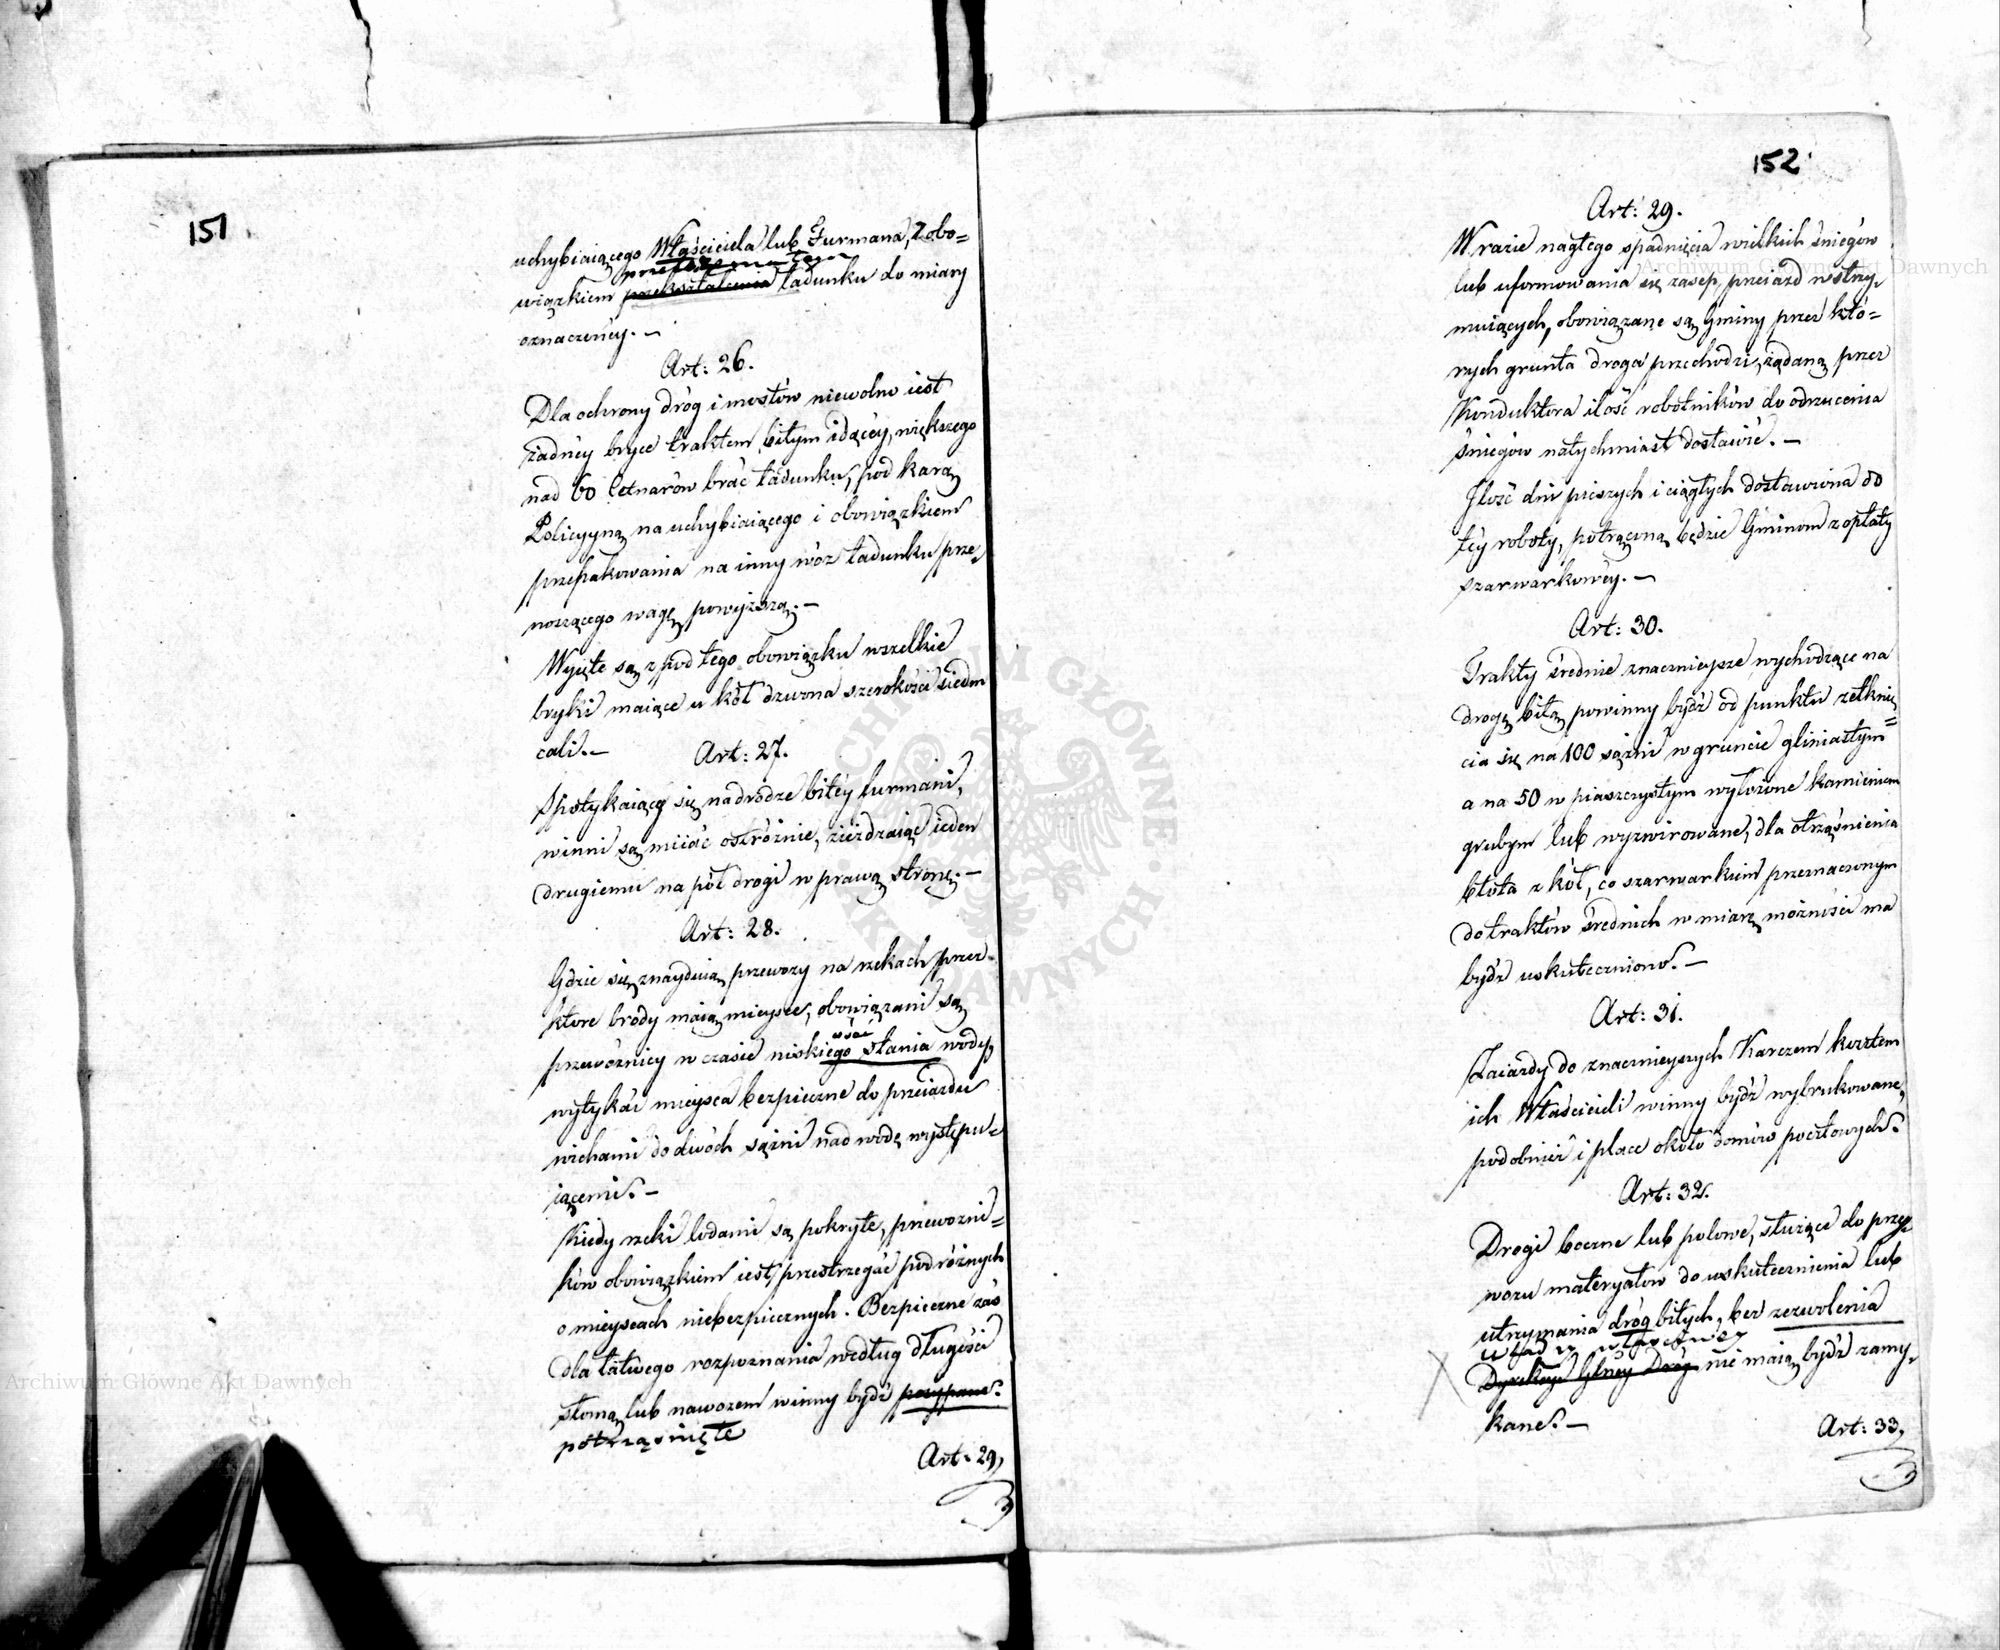 151.
uchybiaiącego Właściciela lub Furmana, z obo=
wiązkiem przekształcenia ładunku do miary
oznaczoney. —
Art: 26.
Dla ochrony dróg i mostów niewolno iest
żadney bryce traktem bitym idącey, większego
nad 60 Cetnarów brać ładunku, pod karą
Policyyną na uchybiaiącego i obowiązkiem
przepakowania na inny wóz ładunku prze=
noszącego wagę powyższą. —
Wyięte są z pod tego obowiązku wszelkie
bryki maiące u kół dzwona szerokości siedm
cali. —
Art: 27.
Spotykaiący się na drodze bitey furmani,
winni są miiać ostróżnie, zieżdzaiąc ieden
drugiemu na pół drogi w prawą stronę. —
Art: 28.
Gdzie się znayduią przewozy na rzekach przez
które brody maią mieysce, obowiązani są
przewoźnicy w czasie niskiego stania wody,
wytykać mieysca bezpieczne do przeiazdu
wichami do dwóch sążni nad wodę występu=
iącemi. —
Kiedy rzeki lodami są pokryte, przewoźni=
ków obowiązkiem iest, przestrzegać podróżnych
o mieyscach niebezpiecznych. Bezpieczne zaś
dla łatwego rozpoznania według długości
słomą lub nawozem winny bydź posypane.
potrząśnięte
Art: 29,
152.
Art: 29.
W razie nagłego spadnięcia wielkich śniegów
lub uformowania się zasep, przeiazd wstrzy=
muiących, obowiązane są Gminy przez któ=
rych grunta droga przechodzi, żądaną przez
Konduktora ilość robotników do odrzucenia
śniegów natychmiast dostawić. —
Ilość dni pieszych i ciągłych dostawiona do
tey roboty, potrącona będzie Gminom z opłaty
szarwarkowey. —
Art: 30.
Trakty średnie znacznieysze wychodzące na
drogę bitą powinny bydź od punktu zetknię=
cia się na 100 sążni w gruncie gliniastym
a na 50 w piaszczystym wyłożone kamieniem
grubym lub wyżwirowane, dla otrząśnienia
błota z kół, co szarwarkiem przeznaczonym
do traktów średnich w miarę możności ma
bydź uskuteczniono. —
Art: 31.
Zaiazdy do znacznieyszych Karczem kosztem
ich Właścicieli winny bydź wybrukowane,
podobnież i place około domów pocztowych.
Art: 32.
Drogi boczne lub polowe, służące do przy=
wozu materyałów do uskutecznienia lub
utrzymania dróg bitych, bez zezwolenia
Dyrekcyi Głney Dróg nie maią bydź zamy=
kane. —
Art: 33,
Archiwum Główne Akt Dawnych
Archiwum Główne Akt Dawnych
ARCHIWUM GŁÓWNE · AKT DAWNYCH ·